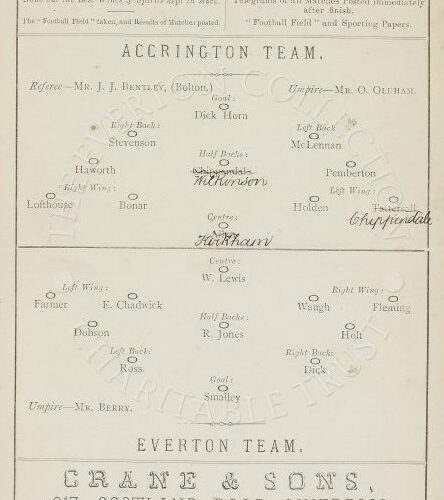 The "Football Field" taken, and Results of Matches posted.
Telegrams of all Matches Posted immediately
after finish.
"Football Field" and Sporting Papers.
ACCRINGTON TEAM.
Referee—MR. J. J. BENTLEY, (Bolton.)
Umpire—MR. O. OLDHAM.
Goal:
Dick Horn
Right Back:
Stevenson
Left Back
McLennan
Half Backs:
Haworth
Chippendale
Wilkinson
Pemberton
Right Wing:
Left Wing:
Lofthouse
Bonar
Holden
Tattersall
Chippendale
Centre:
Kirkham
Centre:
W. Lewis
Left Wing:
Right Wing:
Farmer
E. Chadwick
Waugh
Fleming
Half Backs:
Dobson
R. Jones
Holt
Left Back:
Right Back:
Ross
Dick
Goal:
Smalley
Umpire—MR. BERRY.
EVERTON TEAM.
CRANE & SONS,
THE EVERTON COLLECTION
CHARITABLE TRUST